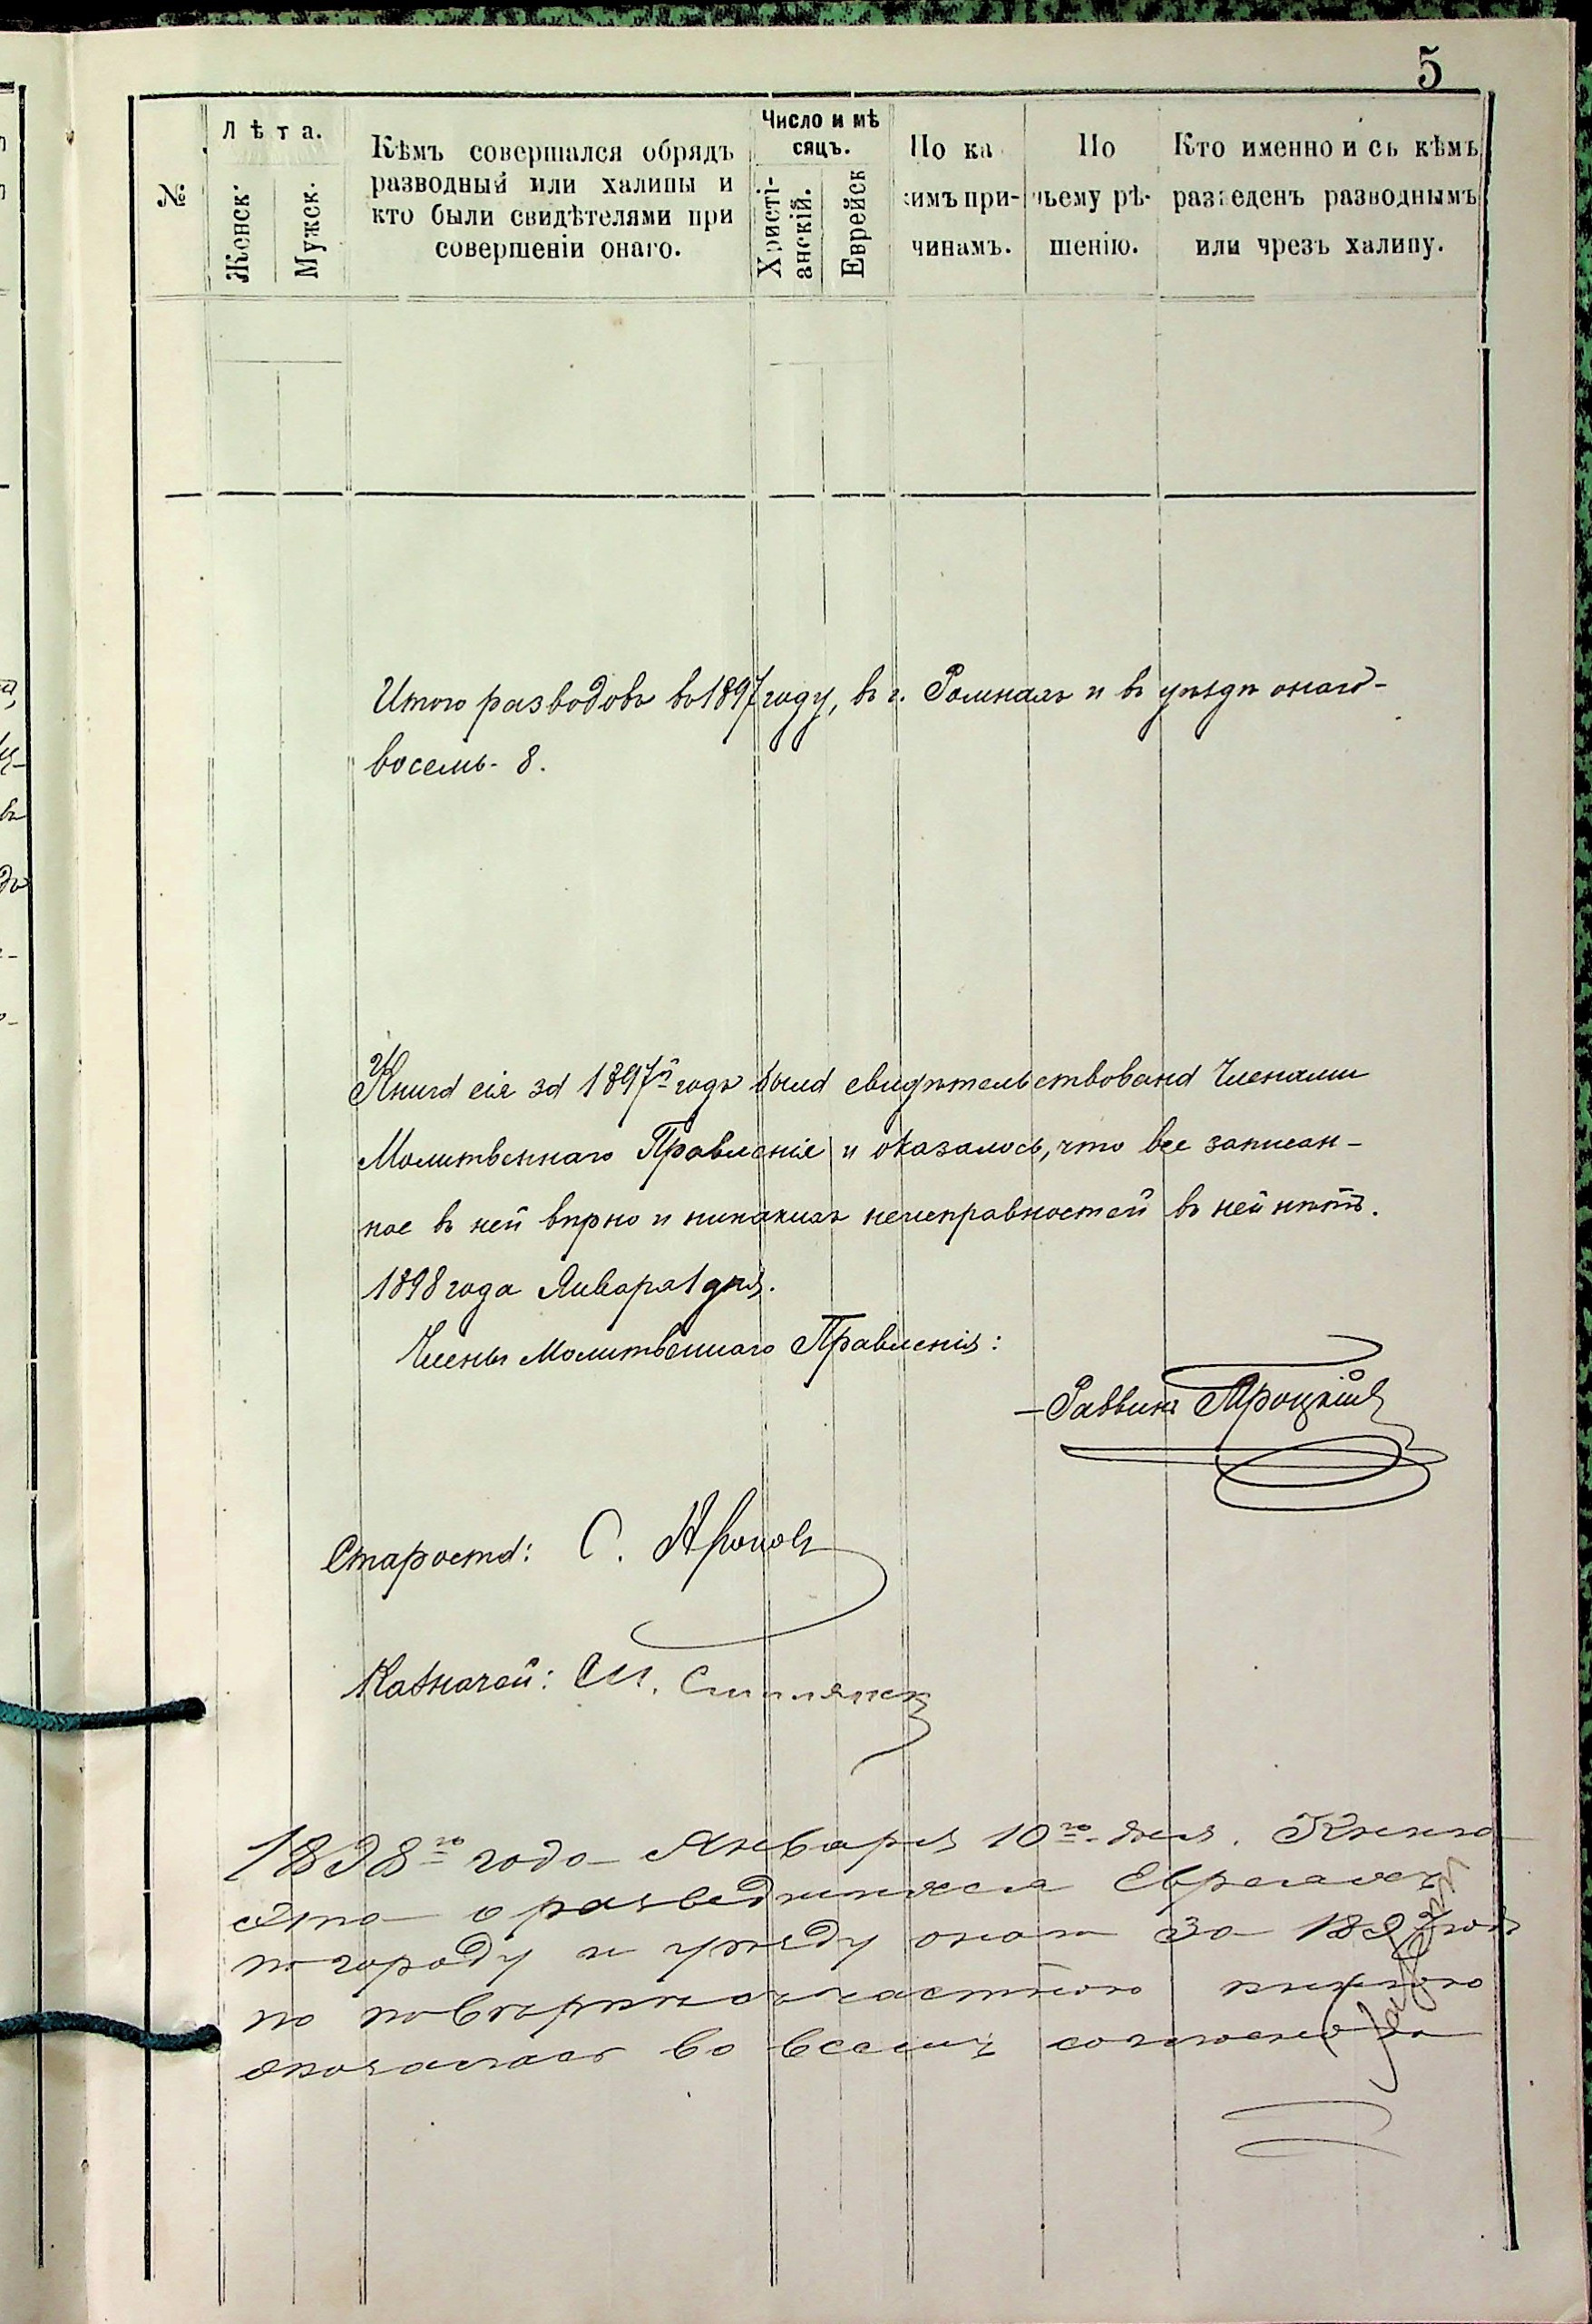 5
№
Лѣта.
Женск.
Мужск.
Кѣмъ совершался обрядъ
разводный или халицы и
кто были свидѣтелями при
совершеніи онаго.
Число и мѣ
сяцъ.
Христі-
анскій.
Еврейск
По ка
кимъ при-
чинамъ.
По
чьему рѣ-
шенію.
Кто именно и съ кѣмъ
разведенъ разводнымъ
или чрезъ халицу.
Итого разводовъ въ 1897 году, въ г. Ромнахъ и въ уѣздѣ онаго-
восемь- 8.
Книга сія за 1897й годъ была свидѣтельствована Членами
Молитвеннаго Правленія и оказалось, что все записан-
ное въ ней вѣрно и никакихъ неисправностей въ ней нѣтъ.
1898 года Января 1 дня.
Члены Молитвеннаго Правленія:
-Раввинъ Троцкій
Староста: С. Ароновъ
Казначей: См.
1898го года Января 10го дня. Книга
эта о разведшихся Евреяхъ
по городу и уѣзду онаго за 1897 годъ
по повѣркѣ съ частною книгою
оказалась во всемъ согласною